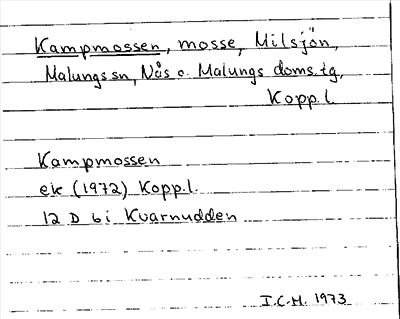 Kampmossen, mosse, Milsjön,
Malungs sn, Nås o. Malungs doms. tg,
Kopp. l.
Kampmossen
ek (1972) Kopp. l.
12 D 6 i Kvarnudden
I.C.H. 1973